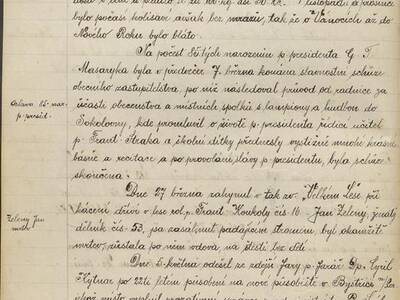 bylo počasí kolísací avšak bez mrazů, tak, že o Vánocích až do
Nového Roku bylo bláto.
Na počest 85tých narozenin p. presidenta G. T.
Masaryka byla v předvečer 7. března konána slavnostní schůze
obecního zastupitelstva, po níž následoval průvod od radnice za
účasti obecenstva a místních spolků s lampiony a hudbou do
Oslava 85. nar.
p. presid.
Sokolovny, kde promluvil o životě p. presidenta řídící učitel
p. Frant. a školní dítky přednesly výstižně mnoho krásné
básně a recitace a po provolání slávy p. presidentu, byla schůze
skončena.
Dne 27. března zahynul v tak zv. Velkém Lese při
kácení dříví v lese rol. p. Frant. Houkoly čís. 16. Jan Zelený, ženatý
Zelený Jan
dělník čís. 53, pa zasáhnut padajícím stromem, byl okamžitě
mrtev, zůstala po něm vdova, na štěstí bez dětí.
Dne 5. května odešel ze zdejší fary p. farář Dp. Cyril
Kytnar po 22ti letém působení na nové působiště v Bystřici